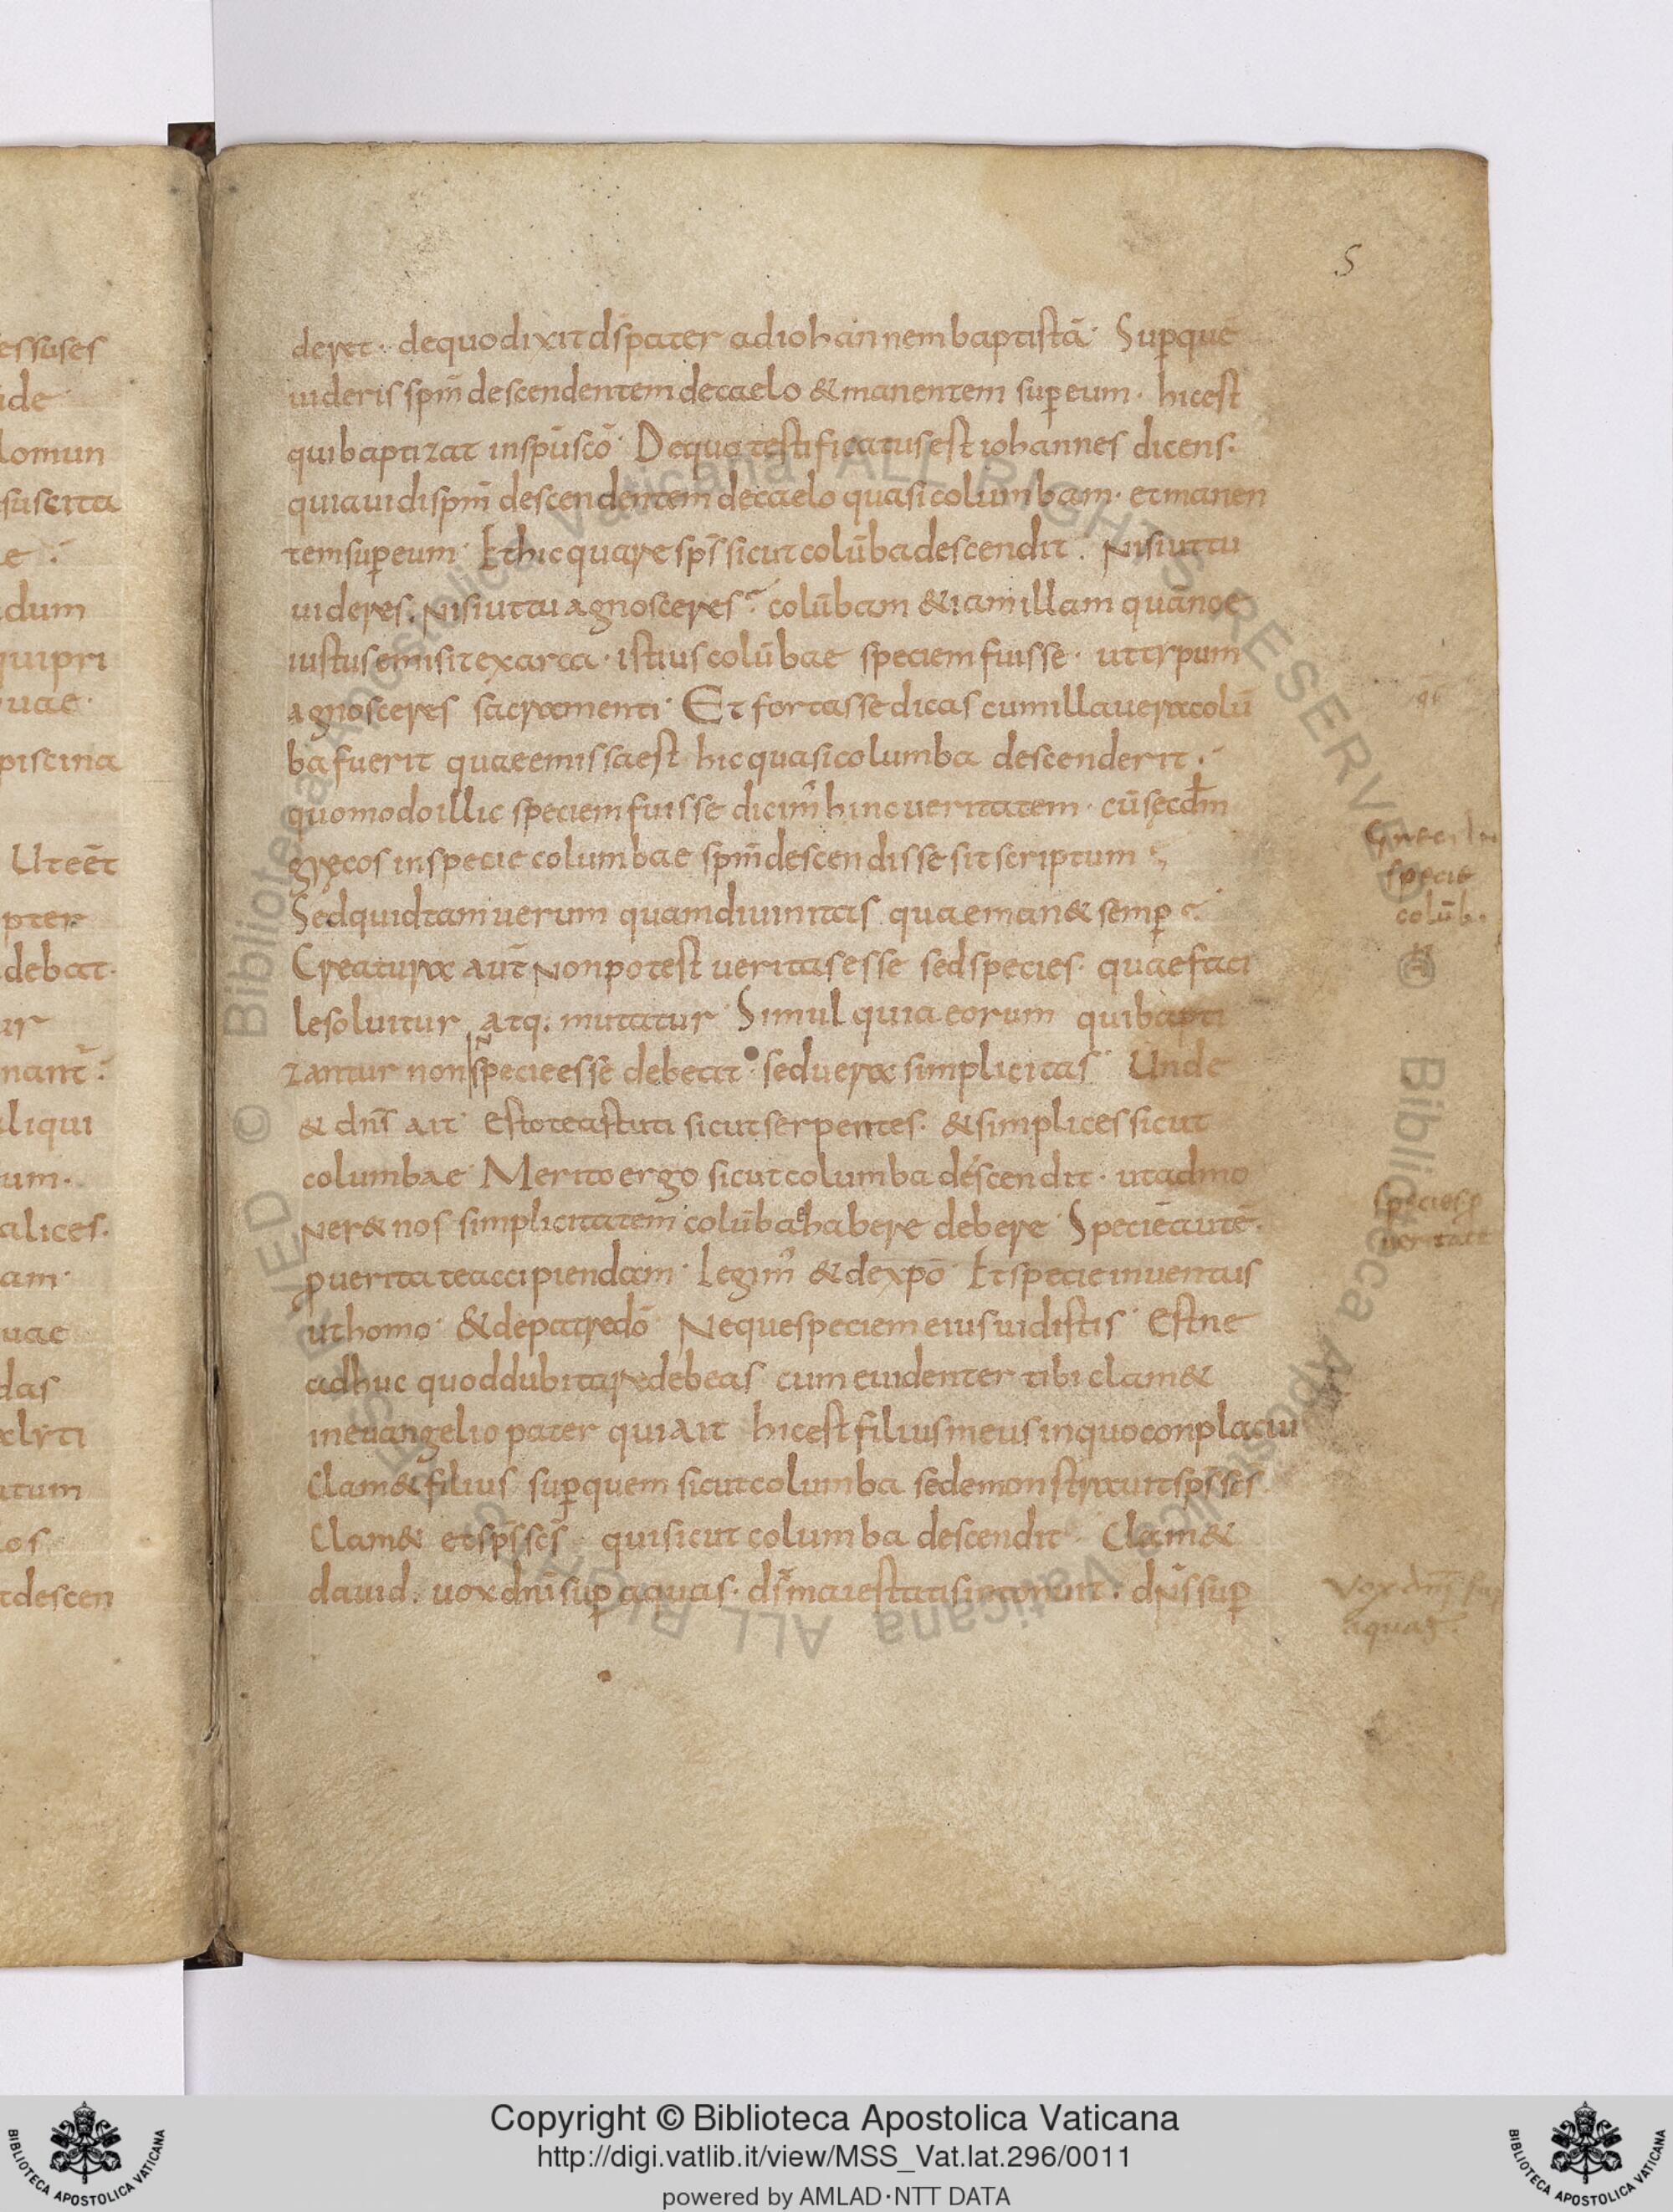 5
deret · dequo dixit d̄s pater ad iohannem baptistā · Sup̱quē
uideris sp̄m descendentem decaelo & manentem sup̱ eum · hicest
quibaptizat insp̄u scō · Dequo testificatus est iohannes dicens ·
quia uidi sp̄m descendentem decaelo quasi columbam · et manen
tem sup̱ eum · Et hic quare sp̄s sicut colūba descendit . Nisi ut tu
uideres . Nisi ut tu agnosceres · colūbam & iam illam quā noe
iustus emisit exarca · istius colūbae speciem fuisse · ut typum
agnosceres sacramenti · Et fortasse dicas cum illa uera colū
ba fuerit quae emissa est hic quasi columba descenderit ·
quomodo illic speciem fuisse dicim̄ hinc ueritatem · cū secdm̄
gręcos inspecie columbae sp̄m descendisse sit scriptum
Sed quid tam uerum quam diuinitas quae man& semp̱
Creatura aūt Non potest ueritas esse sed species · quae faci
le soluitur atq: mutatur · Simul quia eorum quibapti
zantur non speciẽ esse debeat · sed uera simplicitas · Unde
& dn̄s ait · Estote astuti sicut serpentes · & simplices sicut
columbae · Merito ergo sicut columba descendit · ut admo
Ner& nos simplicitatem colūbae habere debere · Speciē autē ·
p̱ ueritate accipiendam · Legim̄ & de xp̄o · Et specie inuentus
ut homo · & depatre dō · Neque speciem eius uidistis · Estne
adhuc quod dubitare debeas cum euidenter tibi clam&
in euangelio pater qui ait hic est filius meus in quo conplacui
Clam& filius sup̱ quem sicut columba se demonstrauit sp̄s sc̄s ·
Clam& et sp̄s sc̄s · qui sicut columba descendit · Clam&
dauid . uox dn̄i sup̱ aquas · d̄s maiestatis intonuit . dN̄s sup̱
specie
colūb .
species p̱
ueritate
Vox dn̄i sup̱
aquas
essuses
ide
lomun
suscita
e
dum
quipri
uae ·
piscina
Uteēt
pter
debat ·
ur
nant̄
liqui
um ·
alices ·
am ·
uae
das
clyti
utum
os
tdescen
© Biblioteca Apostolica Vaticana ALL RIGHTS RESERVED
© Biblioteca Apostolica Vaticana ALL RIGHTS RESERVED
BIBLIOTECA APOSTOLICA VATICANA
Copyright © Biblioteca Apostolica Vaticana
http://digi.vatlib.it/view/MSS_Vat.lat.296/0011
powered by AMLAD·NTT DATA
BIBLIOTECA APOSTOLICA VATICANA